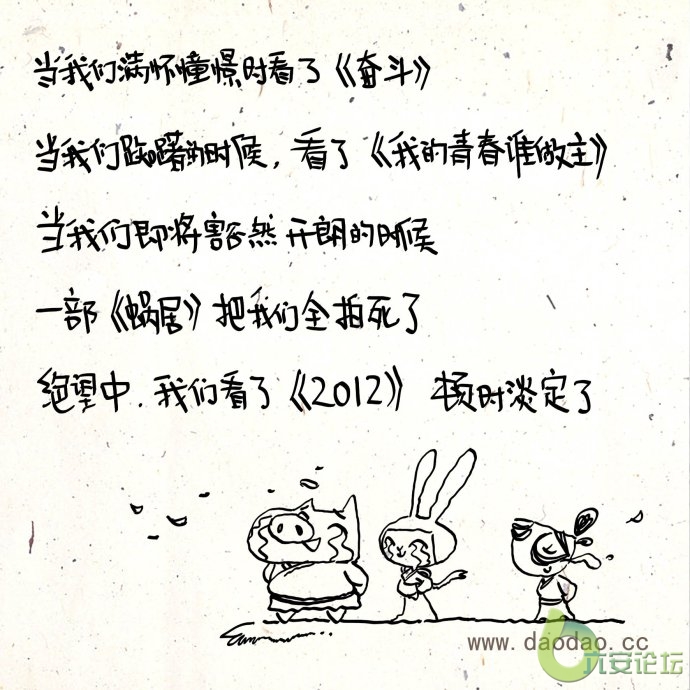 当我们满怀憧憬时看了《奋斗》
当我们踟躇的时候，看了《我的青春谁做主》
当我们即将豁然开朗的时候
一部《蜗居》把我们全拍死了
绝望中，我们看了《2012》 顿时淡定了
www.daodao.cc
六安论坛